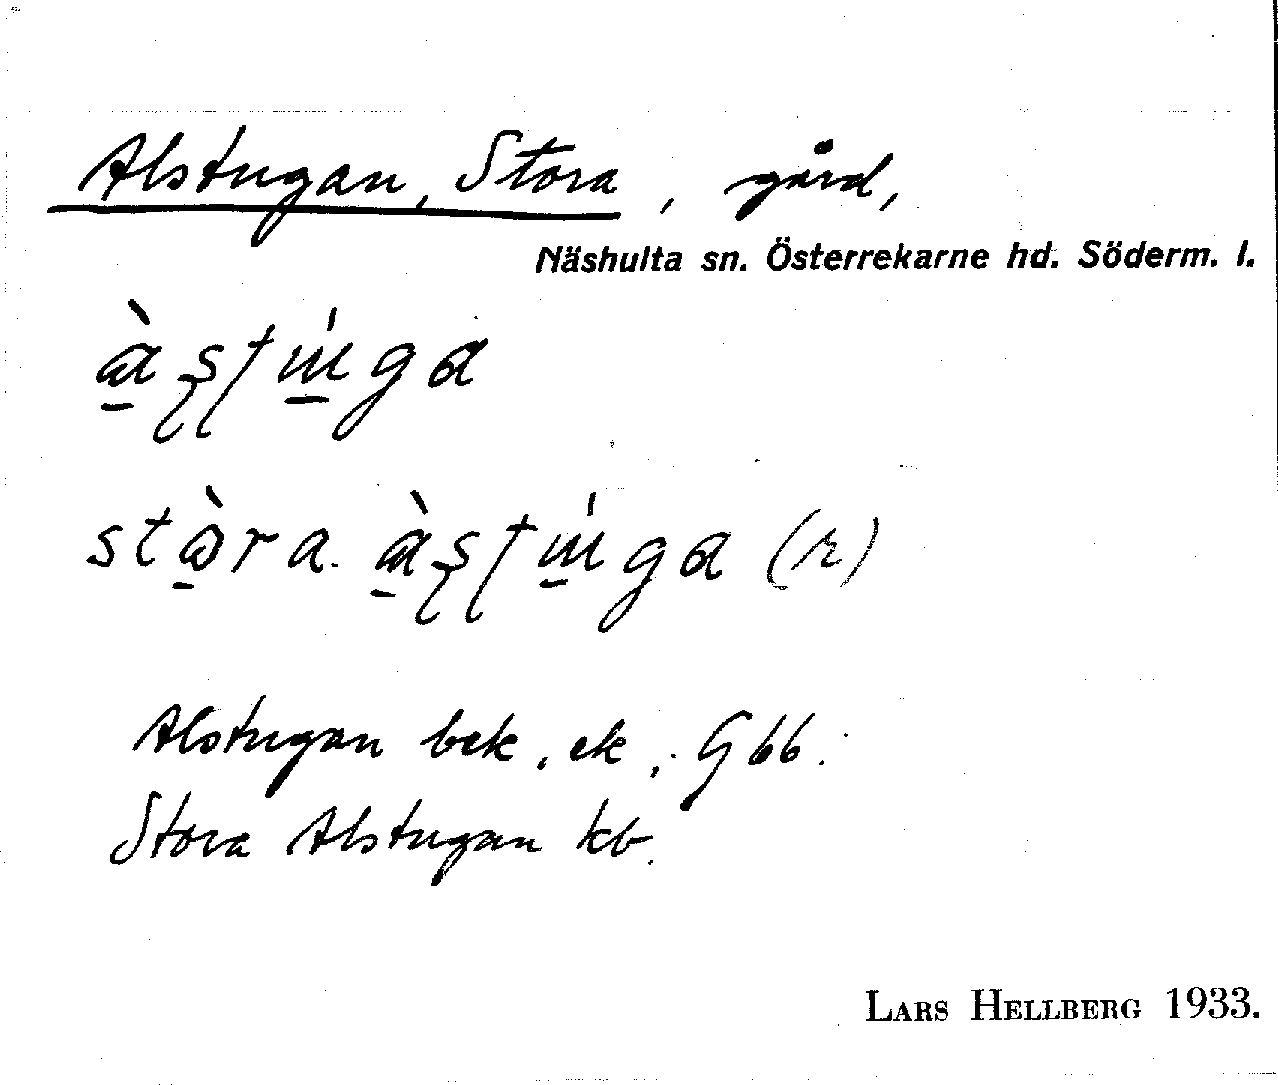 Alstugan, Stora, gård,
Näshulta sn. Österrekarne hd. Söderm. l.
stora
Alstugan bek, ek, Gbb.
Stora Alstugan kb.
LARS HELLBERG 1933.